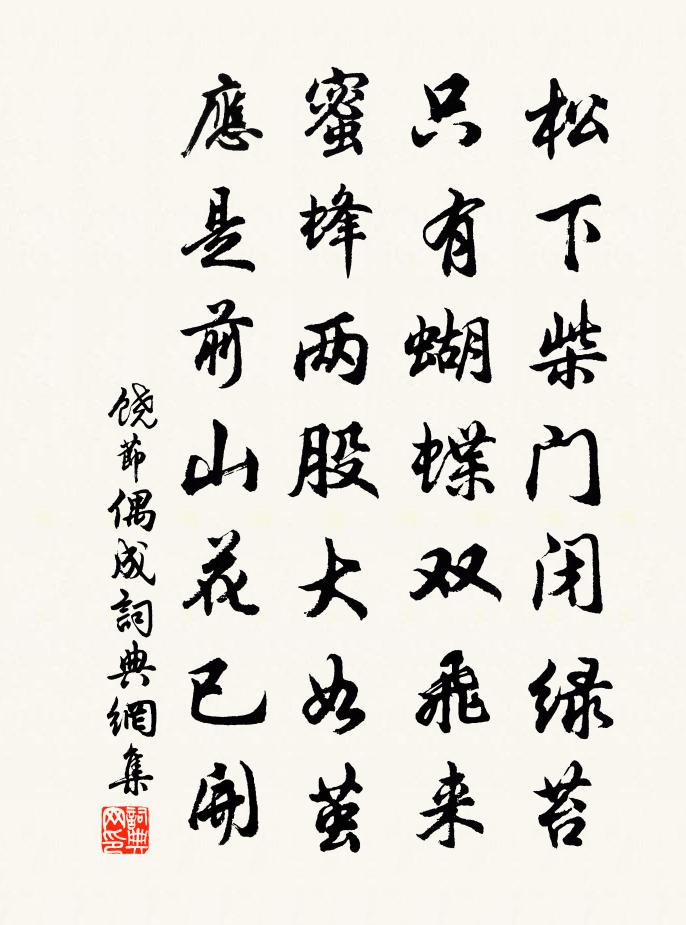 松下柴门闭緑苔
只有蝴蝶双飛来
蜜蜂两股大如茧
應是前山花已開
饶節偶成詞典網集
詞典
网印